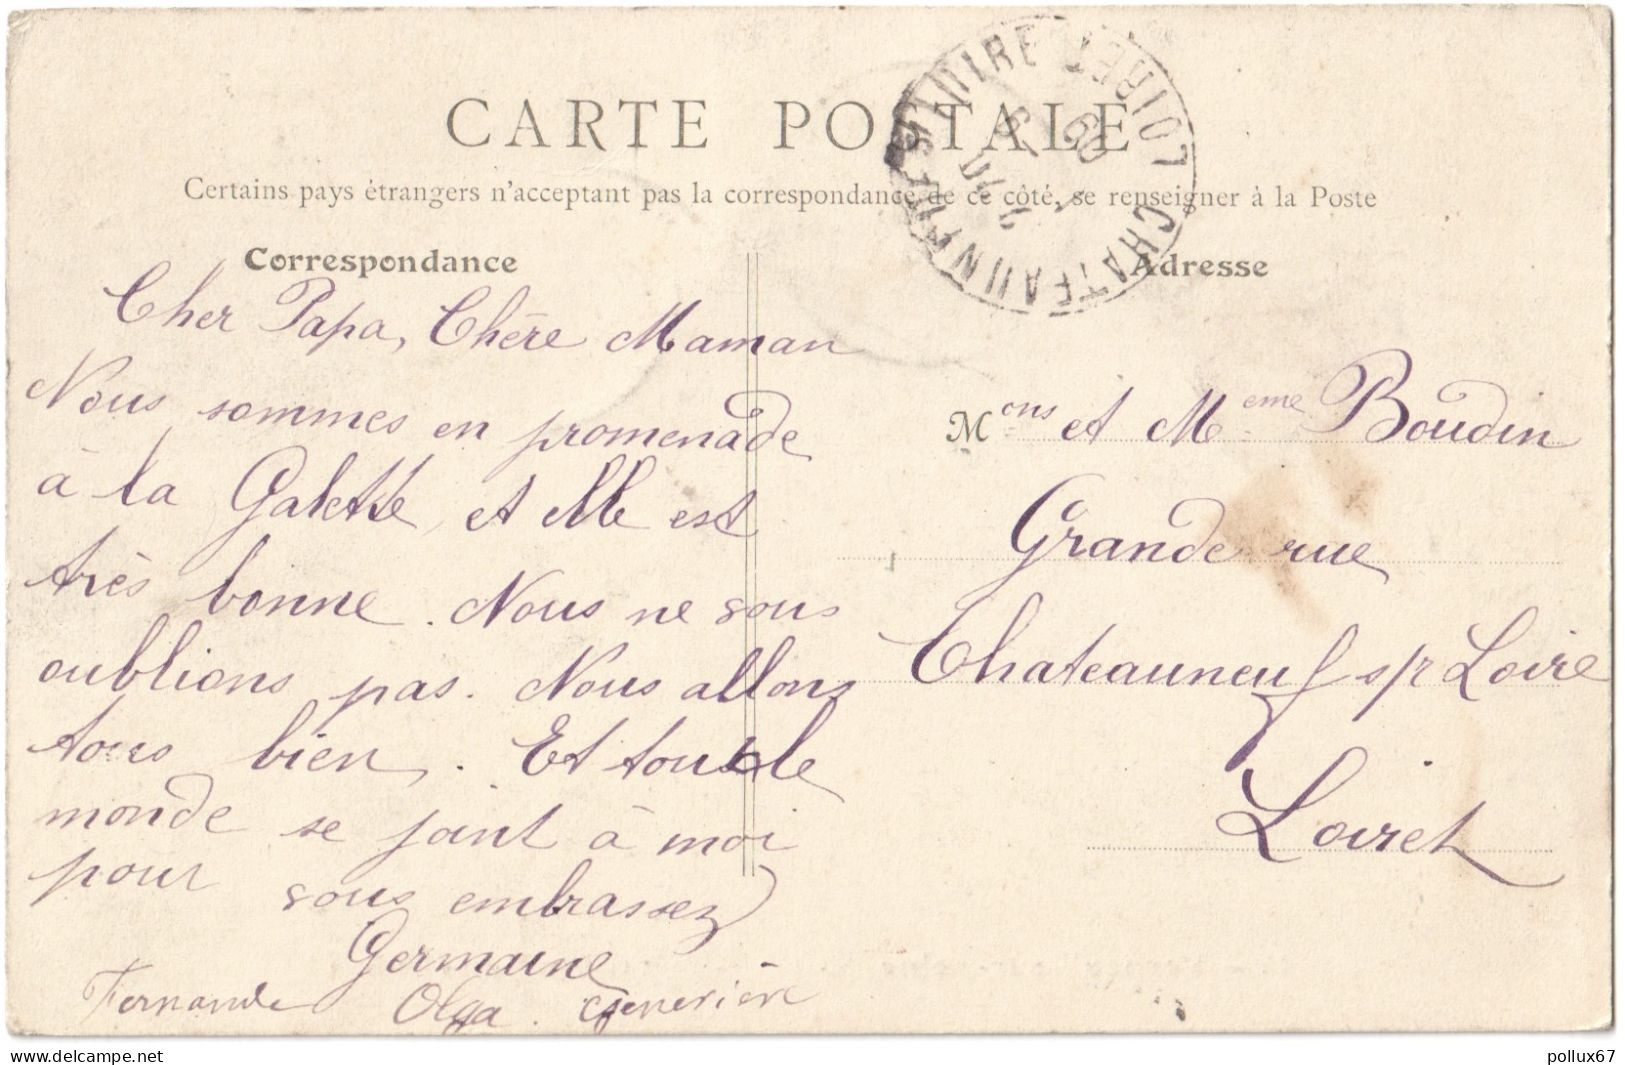 CARTE POSTALE
Certains pays étrangers n'acceptant pas la correspondance de ce côté, se renseigner à la Poste
Correspondance
Cher Papa, Chère Maman
Nous sommes en promenade
à la Galette et elle est
très bonne. Nous ne vous
oublions pas. Nous allons
tous bien. Et tous le
monde se joint à moi
pour vous embrassez
Germaine
Fernande Olga. Geneviève
Adresse
Mons et Meme Boudin
Grande rue
Chateauneuf s/r Loire
Loiret
CHATEAUNEUF-S-LOIRE LOIRET
09
delcampe.net
pollux67